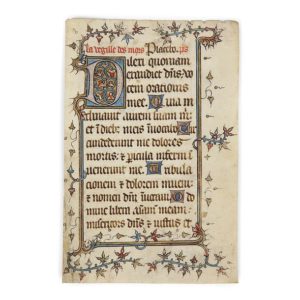 la vegille des mors Placebo. ps
Dilexi quoniam
exaudiet dñs vo
cem orationis
mee. Quia in
clinauit aurem suam m
et i dieb meis inuocabo
cumdederunt me dolores
mortis: et pericula inferni i
uenerunt me. Tribula
cionem et dolorem inueni
et nomen dñi inuocaui. O
domine libera aĩam meam
misericors dñs et iustus et